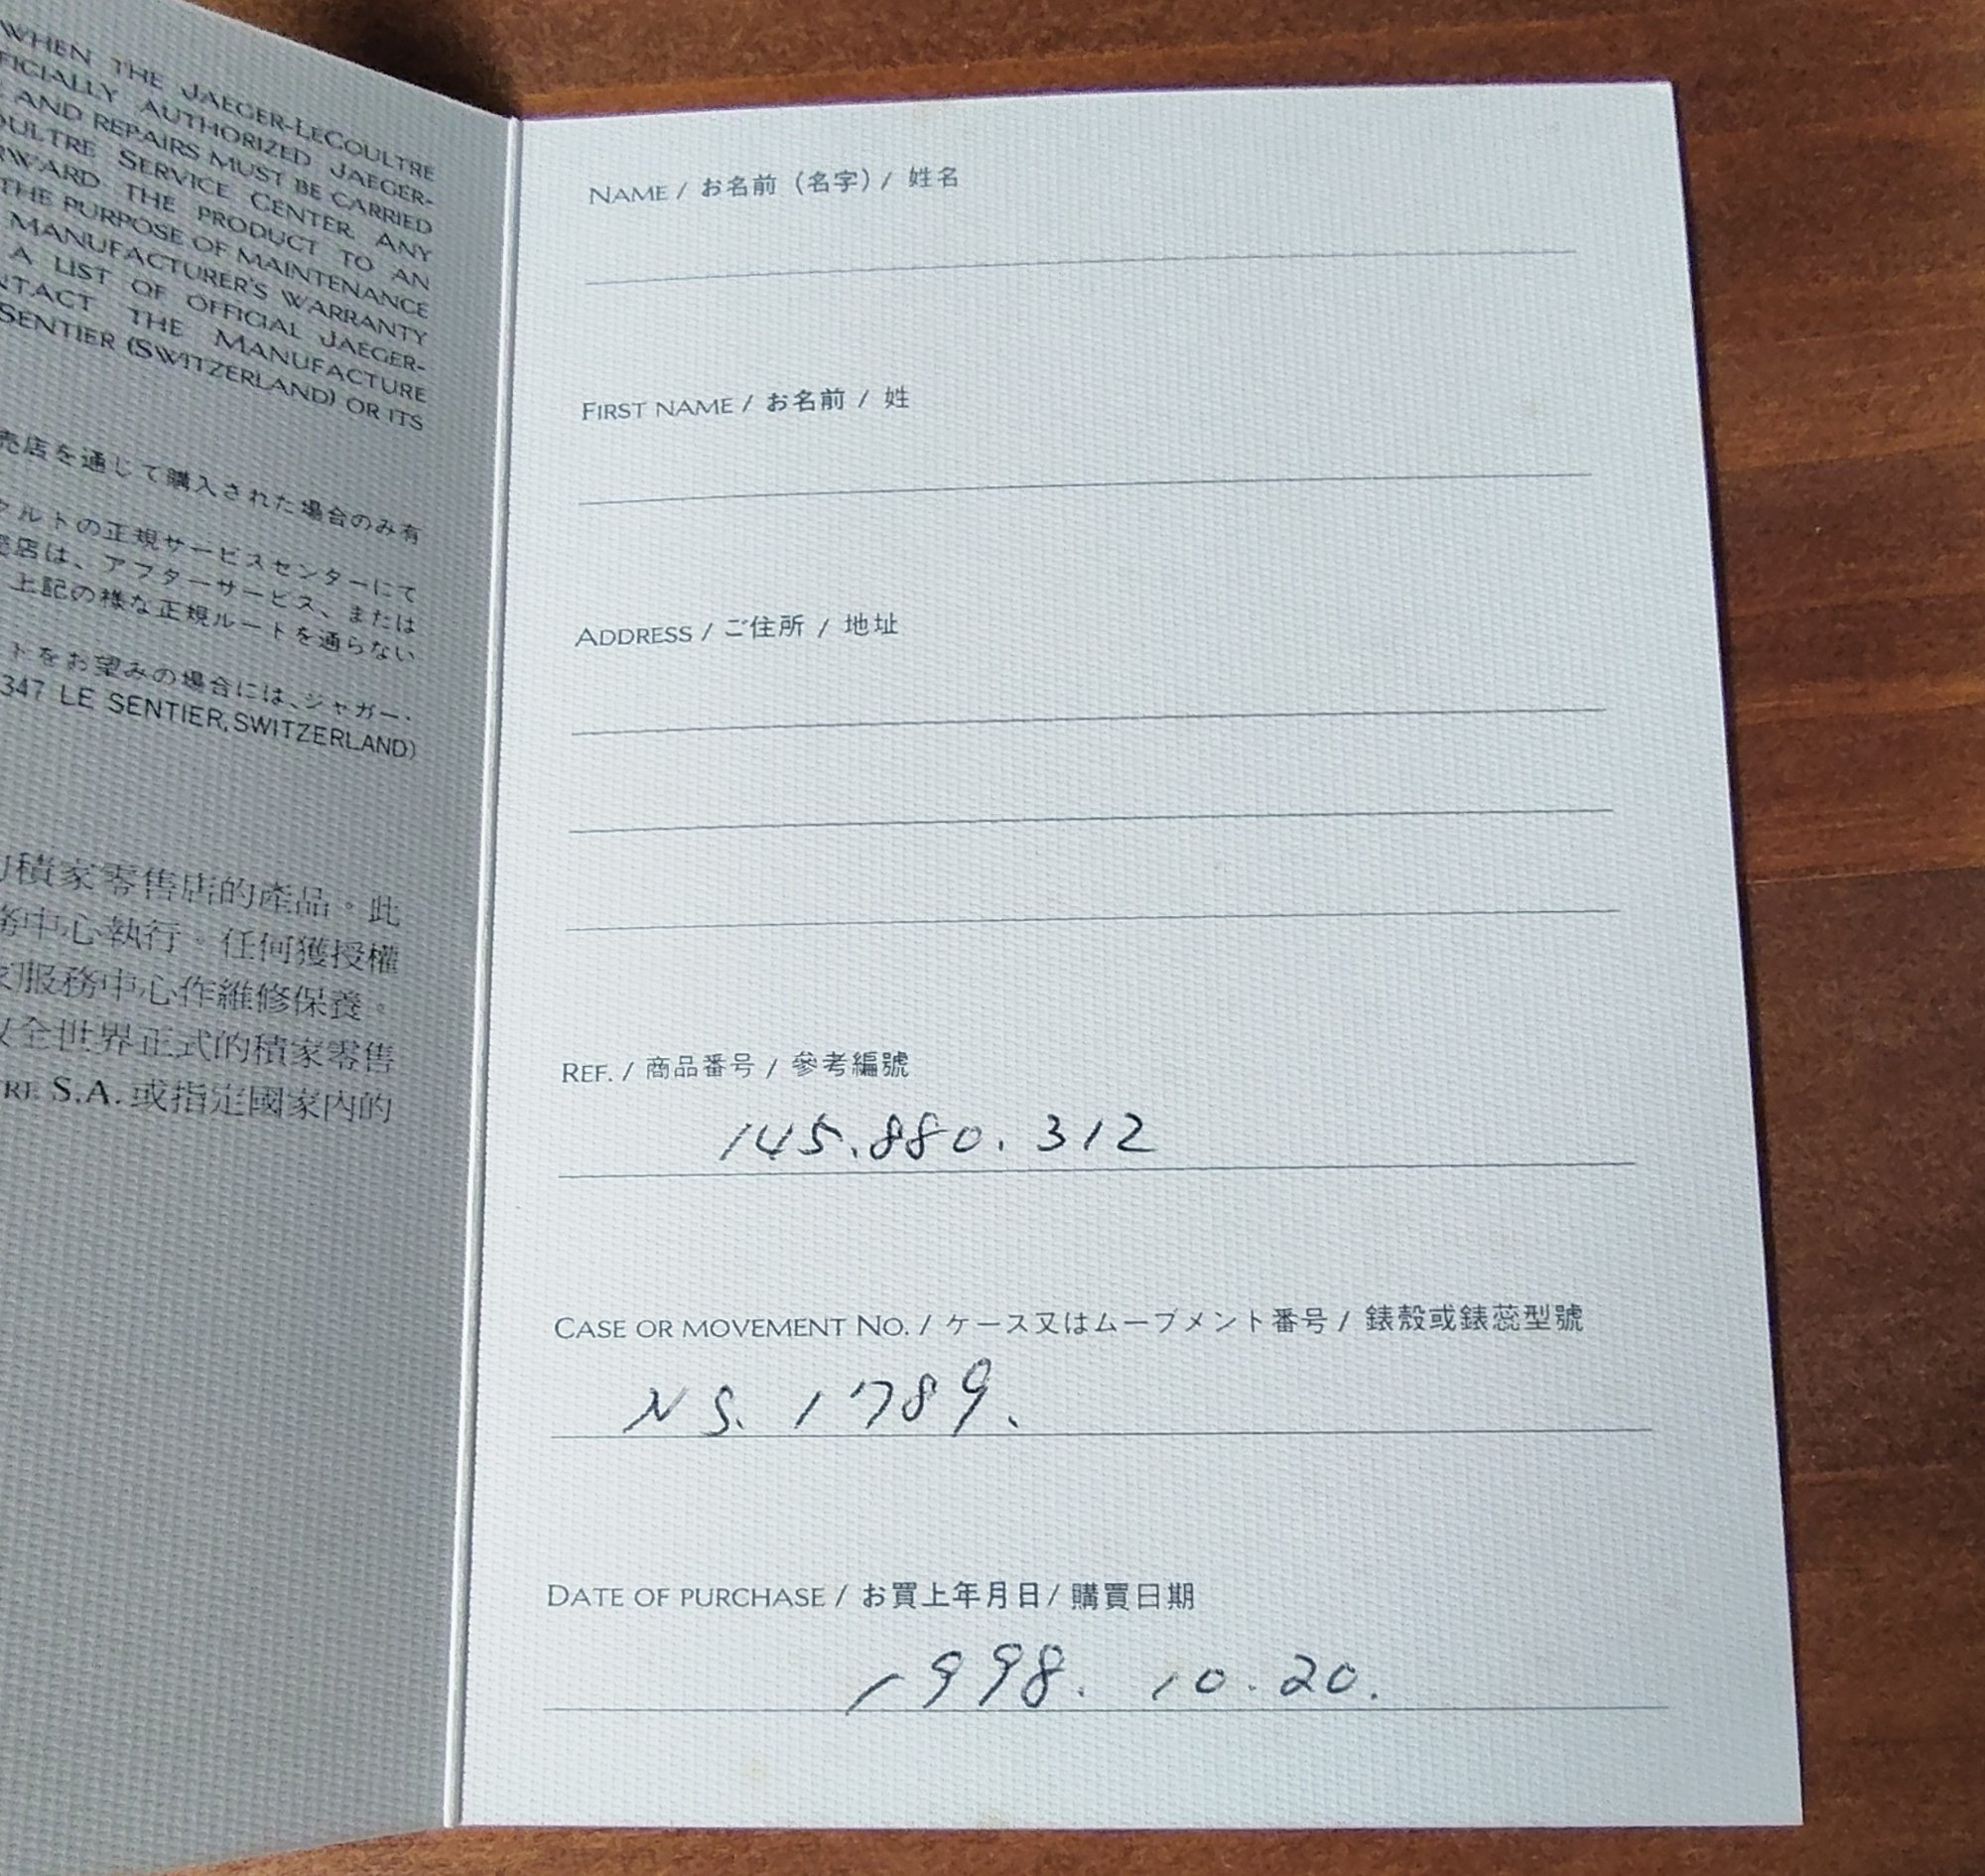 WHEN THE JAEGER-LECOULTRE
OFFICIALLY AUTHORIZED JAEGER-
AND REPAIRS MUST BE CARRIED
SERVICE CENTER. ANY
THE PRODUCT TO AN
THE PURPOSE OF MAINTENANCE
MANUFACTURER'S WARRANTY
A LIST OF OFFICIAL JAEGER-
THE MANUFACTURE
SENTIER (SWITZERLAND) OR ITS
売店を通じて購入された場合のみ有
クルトの正規サービスセンターにて
店は、アフターサービス、または
上記の様な正規ルートを通らない
トをお望みの場合には、ジャガー・
347 LE SENTIER, SWITZERLAND)
積家零售店的產品。此
務中心執行。任何獲授權
服務中心作維修保養。
全世界正式的積家零售
RE S.A. 或指定國家內的
NAME / お名前 (名字) / 姓名
FIRST NAME / お名前 / 姓
ADDRESS / ご住所 / 地址
REF. / 商品番号 / 參考編號
145.880.312
CASE OR MOVEMENT NO. / ケース又はムーブメント番号 / 錶殼或錶蕊型號
NS. 1789.
DATE OF PURCHASE / お買上年月日 / 購買日期
1998. 10. 20.